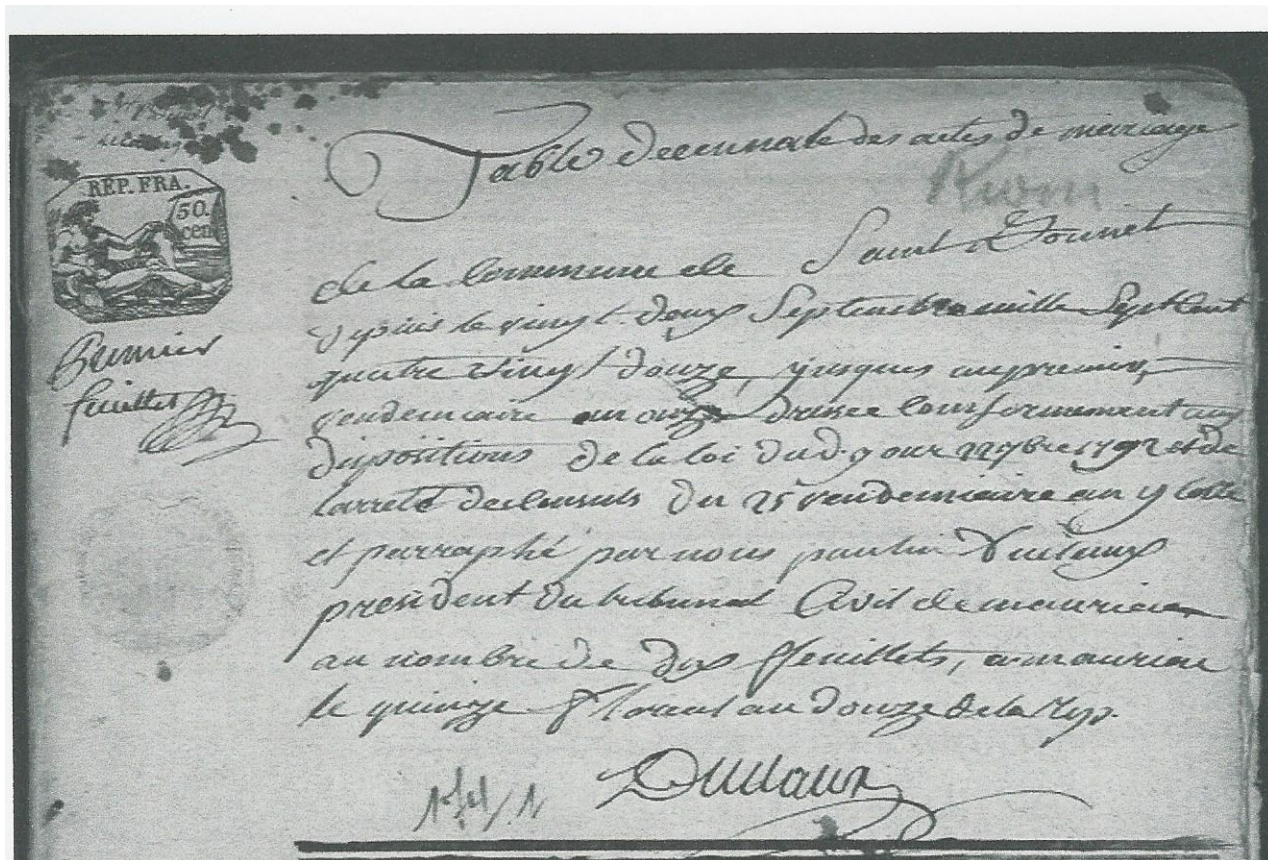 Table decennale des actes de mariage
Riom
de la Commune de Saint Bonnet
REP. FRA.
50.
cen
depuis le vingt deux Septembre mille Sept Cent
Premier
feuillet
quatre vingt douze, jusques au premier
vendemiaire an onze Dressée Conformement aux
dispositions de la loi du 7bre 1792 et de
larreté des Consuls du 25 vendemiaire an 9 Cotté
et parraphé par nous
president du tribunal Civil de mauriac
au nombre de dix ffeuillets, a mauriac
le quinze floreal an douze de la Rep.